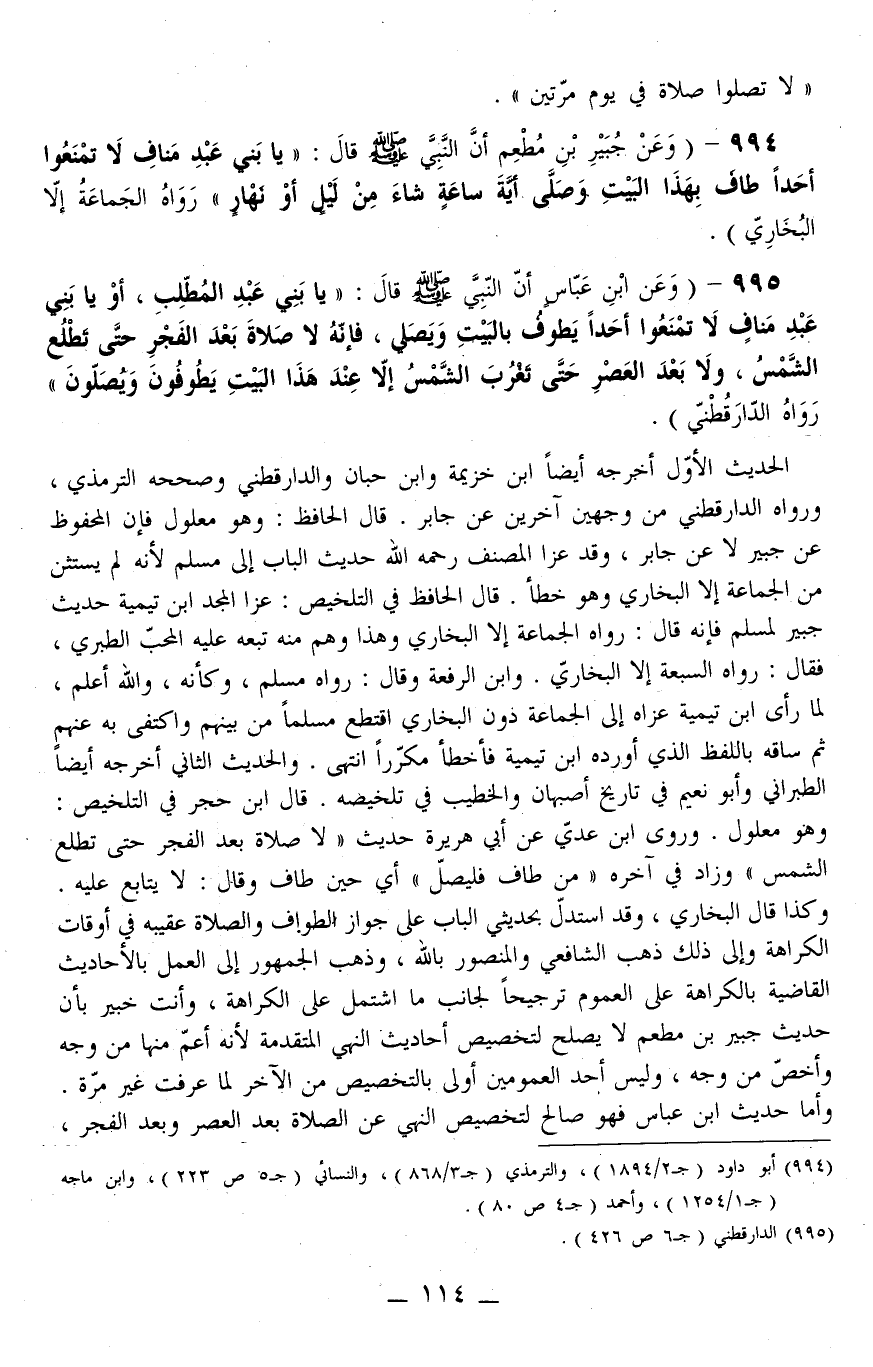 « لا تصلوا صلاة في يوم مرّتين » .
٩٩٤ – ( وَعَنْ جُبَيْرِ بْنِ مُطْعِم أنَّ النَّبِيَّ ﷺ قالَ : « يا بَني عَبْدِ مَنافِ لَا تمْنَعُوا
أحَداً طافَ بِهَذَا البَيْتِ وَصَلَّى أيَّةَ ساعَةٍ شاءَ مِنْ لَيْلٍ أوْ نَهْارٍ » رَوَاهُ الجَماعَةُ إلّا
البُخَارِيّ ) .
٩٩٥ – ( وَعَن ابْنِ عَبّاسٍ أنّ النّبِيَّ ﷺ قالَ : « يا بَنِي عَبْدِ المُطّلِبِ ، أوْ يا بَنِي
عَبْدِ مَنافٍ لَا تمْنَعُوا أحَداً يَطوفُ بالبَيْتِ وَيَصَلي ، فإنّهُ لا صَلاةَ بَعْدَ الفَجْرِ حتَّى تَطْلُع
الشَّمْسُ ، ولَا بَعْدَ العَصْرِ حَتَّى تَغْرُبَ الشَّمْسُ إلّا عِنْدَ هَذَا البَيْتِ يَطُوفُونَ وَيُصَلّونَ »
رَوَاهُ الدّارَقُطْنّي ) .
الحديث الأوّل أخرجه أيضاً ابن خزيمة وابن حبان والدارقطني وصححه الترمذي ،
ورواه الدارقطني من وجهين آخرين عن جابر . قال الحافظ : وهو معلول فإن المحفوظ
عن جبير لا عن جابر ، وقد عزا المصنف رحمه الله حديث الباب إلى مسلم لأنه لم يستثن
من الجماعة إلا البخاري وهو خطأ . قال الحافظ في التلخيص : عزا المجد ابن تيمية حديث
جبير لمسلم فإنه قال : رواه الجماعة إلا البخاري وهذا وهم منه تبعه عليه المحبّ الطبري ،
فقال : رواه السبعة إلا البخاريّ . وابن الرفعة وقال : رواه مسلم ، وكأنه ، والله أعلم ،
لما رأى ابن تيمية عزاه إلى الجماعة دون البخاري اقتطع مسلماً من بينهم واكتفى به عنهم
ثم ساقه باللفظ الذي أورده ابن تيمية فأخطأ مكرّراً انتهى . والحديث الثاني أخرجه أيضاً
الطبراني وأبو نعيم في تاريخ أصبهان والخطيب في تلخيضه . قال ابن حجر في التلخيص :
وهو معلول . وروى ابن عديّ عن أبي هريرة حديث « لا صلاة بعد الفجر حتى تطلع
الشمس » وزاد في آخره « من طاف فليصلّ » أي حين طاف وقال : لا يتابع عليه .
وكذا قال البخاري ، وقد استدلّ بحديثي الباب على جواز الطواف والصلاة عقيبه في أوقات
الكراهة وإلى ذلك ذهب الشافعي والمنصور بالله ، وذهب الجمهور إلى العمل بالأحاديث
القاضية بالكراهة على العموم ترجيحاً لجانب ما اشتمل على الكراهة ، وأنت خبير بأن
حديث جبير بن مطعم لا يصلح لتخصيص أحاديث النهي المتقدمة لأنه أعمّ منها من وجه
وأخصّ من وجه ، وليس أحد العمومين أولى بالتخصيص من الآخر لما عرفت غير مرّة .
وأما حديث ابن عباس فهو صالح لتخصيص النهي عن الصلاة بعد العصر وبعد الفجر ،
(٩٩٤) أبو داود ( جـ١٨٩٤/٢ ) ، والترمذي ( جـ٨٦٨/٣ ) ، والنسائي ( جـ٥ ص ٢٢٣ ) ، وابن ماجه
( جـ١٢٥٤/١ ) ، وأحمد ( جـ٤ ص ٨٠ ) .
(٩٩٥) الدارقطني ( جـ٦ ص ٤٢٦ ) .
— ١١٤ —